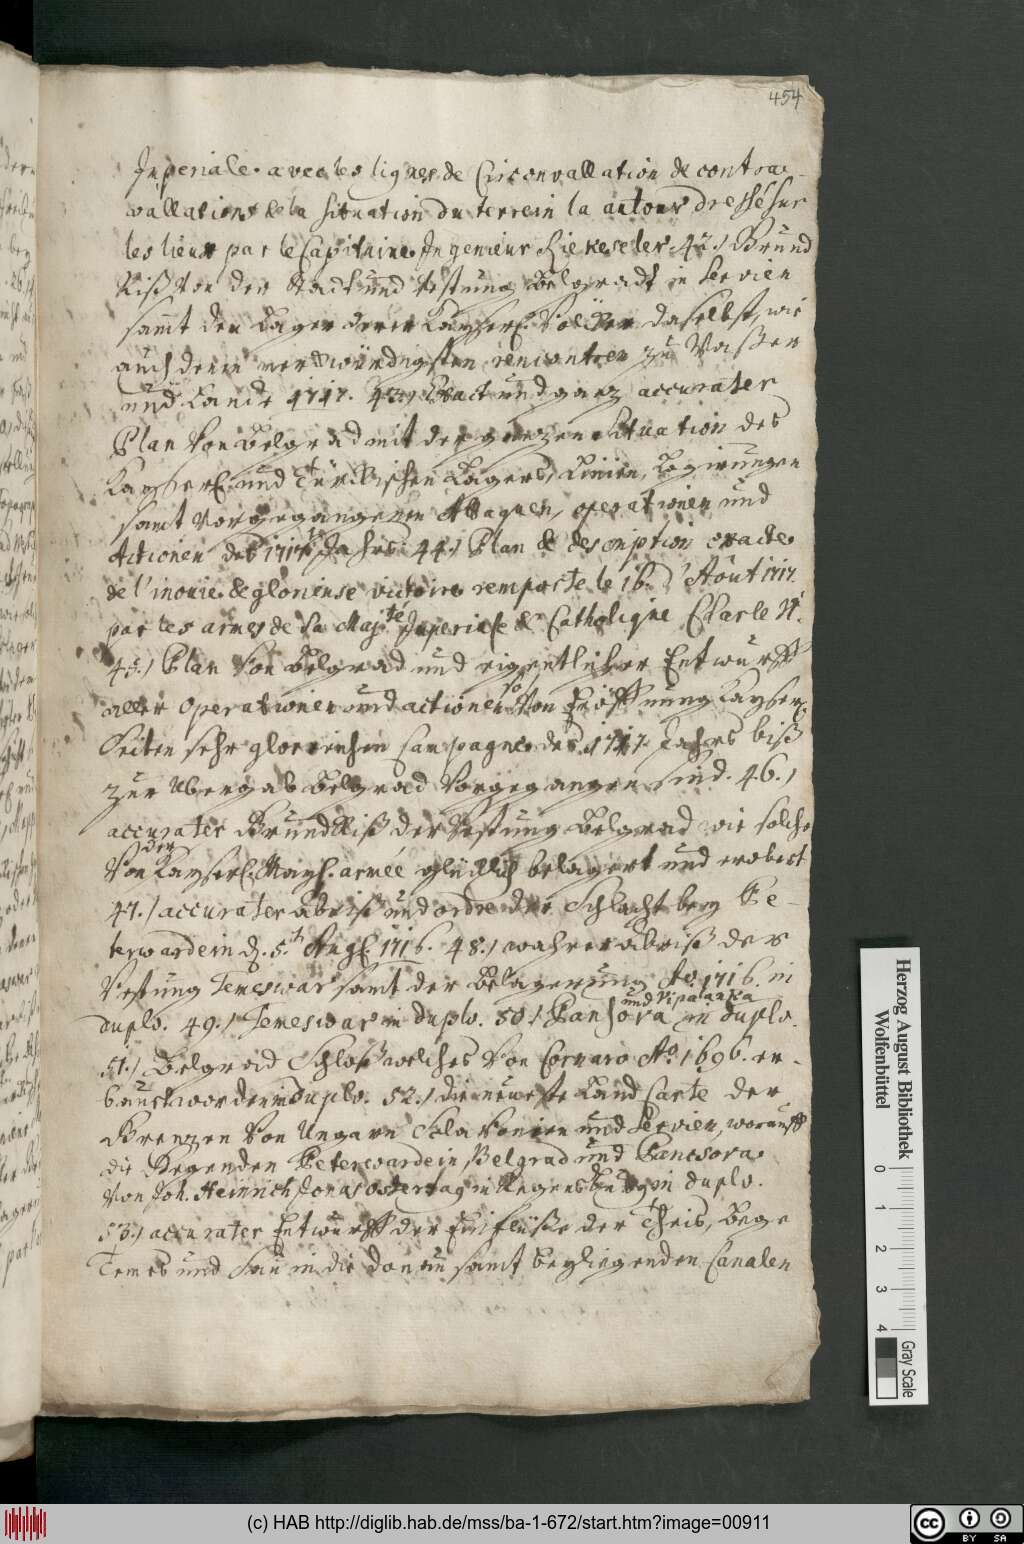 454
Imperiale. avec les lignes de Circonvallation & contra-
vallation & la situation du terrein la autour dressé sur
les lieux par le Capitaine Ingenieur 42.) Grund
Riß von der Stadt und Vestung Belgradt in Servien
samt den Lager derer Kayserl. Völcker daselbst, wie
auch denen merckwürdigsten rencontren zu Waßer
und Lande 1717. 43.) Exact und gantz accurater
Plan von Belgrad mit der gantzen Situation des
Kayserl. und Türckischen Lagers, Linien,
samt vorgegangenen Attaquen, operationen und
Actionen des 1717t Jahrs. 44.) Plan & description exacte
de l'inouie & glorieuse victoire remporte le 16. d'Aout 1717.
par les armes de Sa Majté Imperiale & Catholique Charle VI.
45.) Plan von Belgrad und eigentlicher Entwurff
aller operationen und actionen so von Eröffnung Kayserl.
Seiten sehr glorreichen Campagne des 1717. Jahrs biß
zur Ubergab Belgrad vorgegangen sind. 46.)
accurater GrundRiß der Vestung Belgrad wie solche
von der Kayserl. armée glücklich belagert und erobert
47.) accurater abriß und ordre der Schlacht bey Pe-
terwardein d. 5.t Aug. 1716. 48.) wahrer abriß der
Vestung Temeswar samt der Belagerung Ao. 1716. in
duplo. 49.) Temeswar in duplo. 50.) Pansora und Vipalanka in duplo.
51.) Belgrad Schloß welches von Cornaro Ao. 1696. er-
bauet worden in duplo. 52.) die neueste Land Carte der
Grenzen von Ungarn Sclavonien und Servien, worauff
die Gegenden Peterwardein Belgrad und Pancsova.
von Joh. Heinrich Jonas Ostertag in Regensburg in duplo.
53.) accurater Entwurff der Einflüße der Theis, Bege
Temes und Sau in die Donau samt beyliegenden Canalen
Herzog August Bibliothek
Wolfenbüttel
0 1 2 3 4
Gray Scale
(c) HAB http://diglib.hab.de/mss/ba-1-672/start.htm?image=00911
cc BY SA